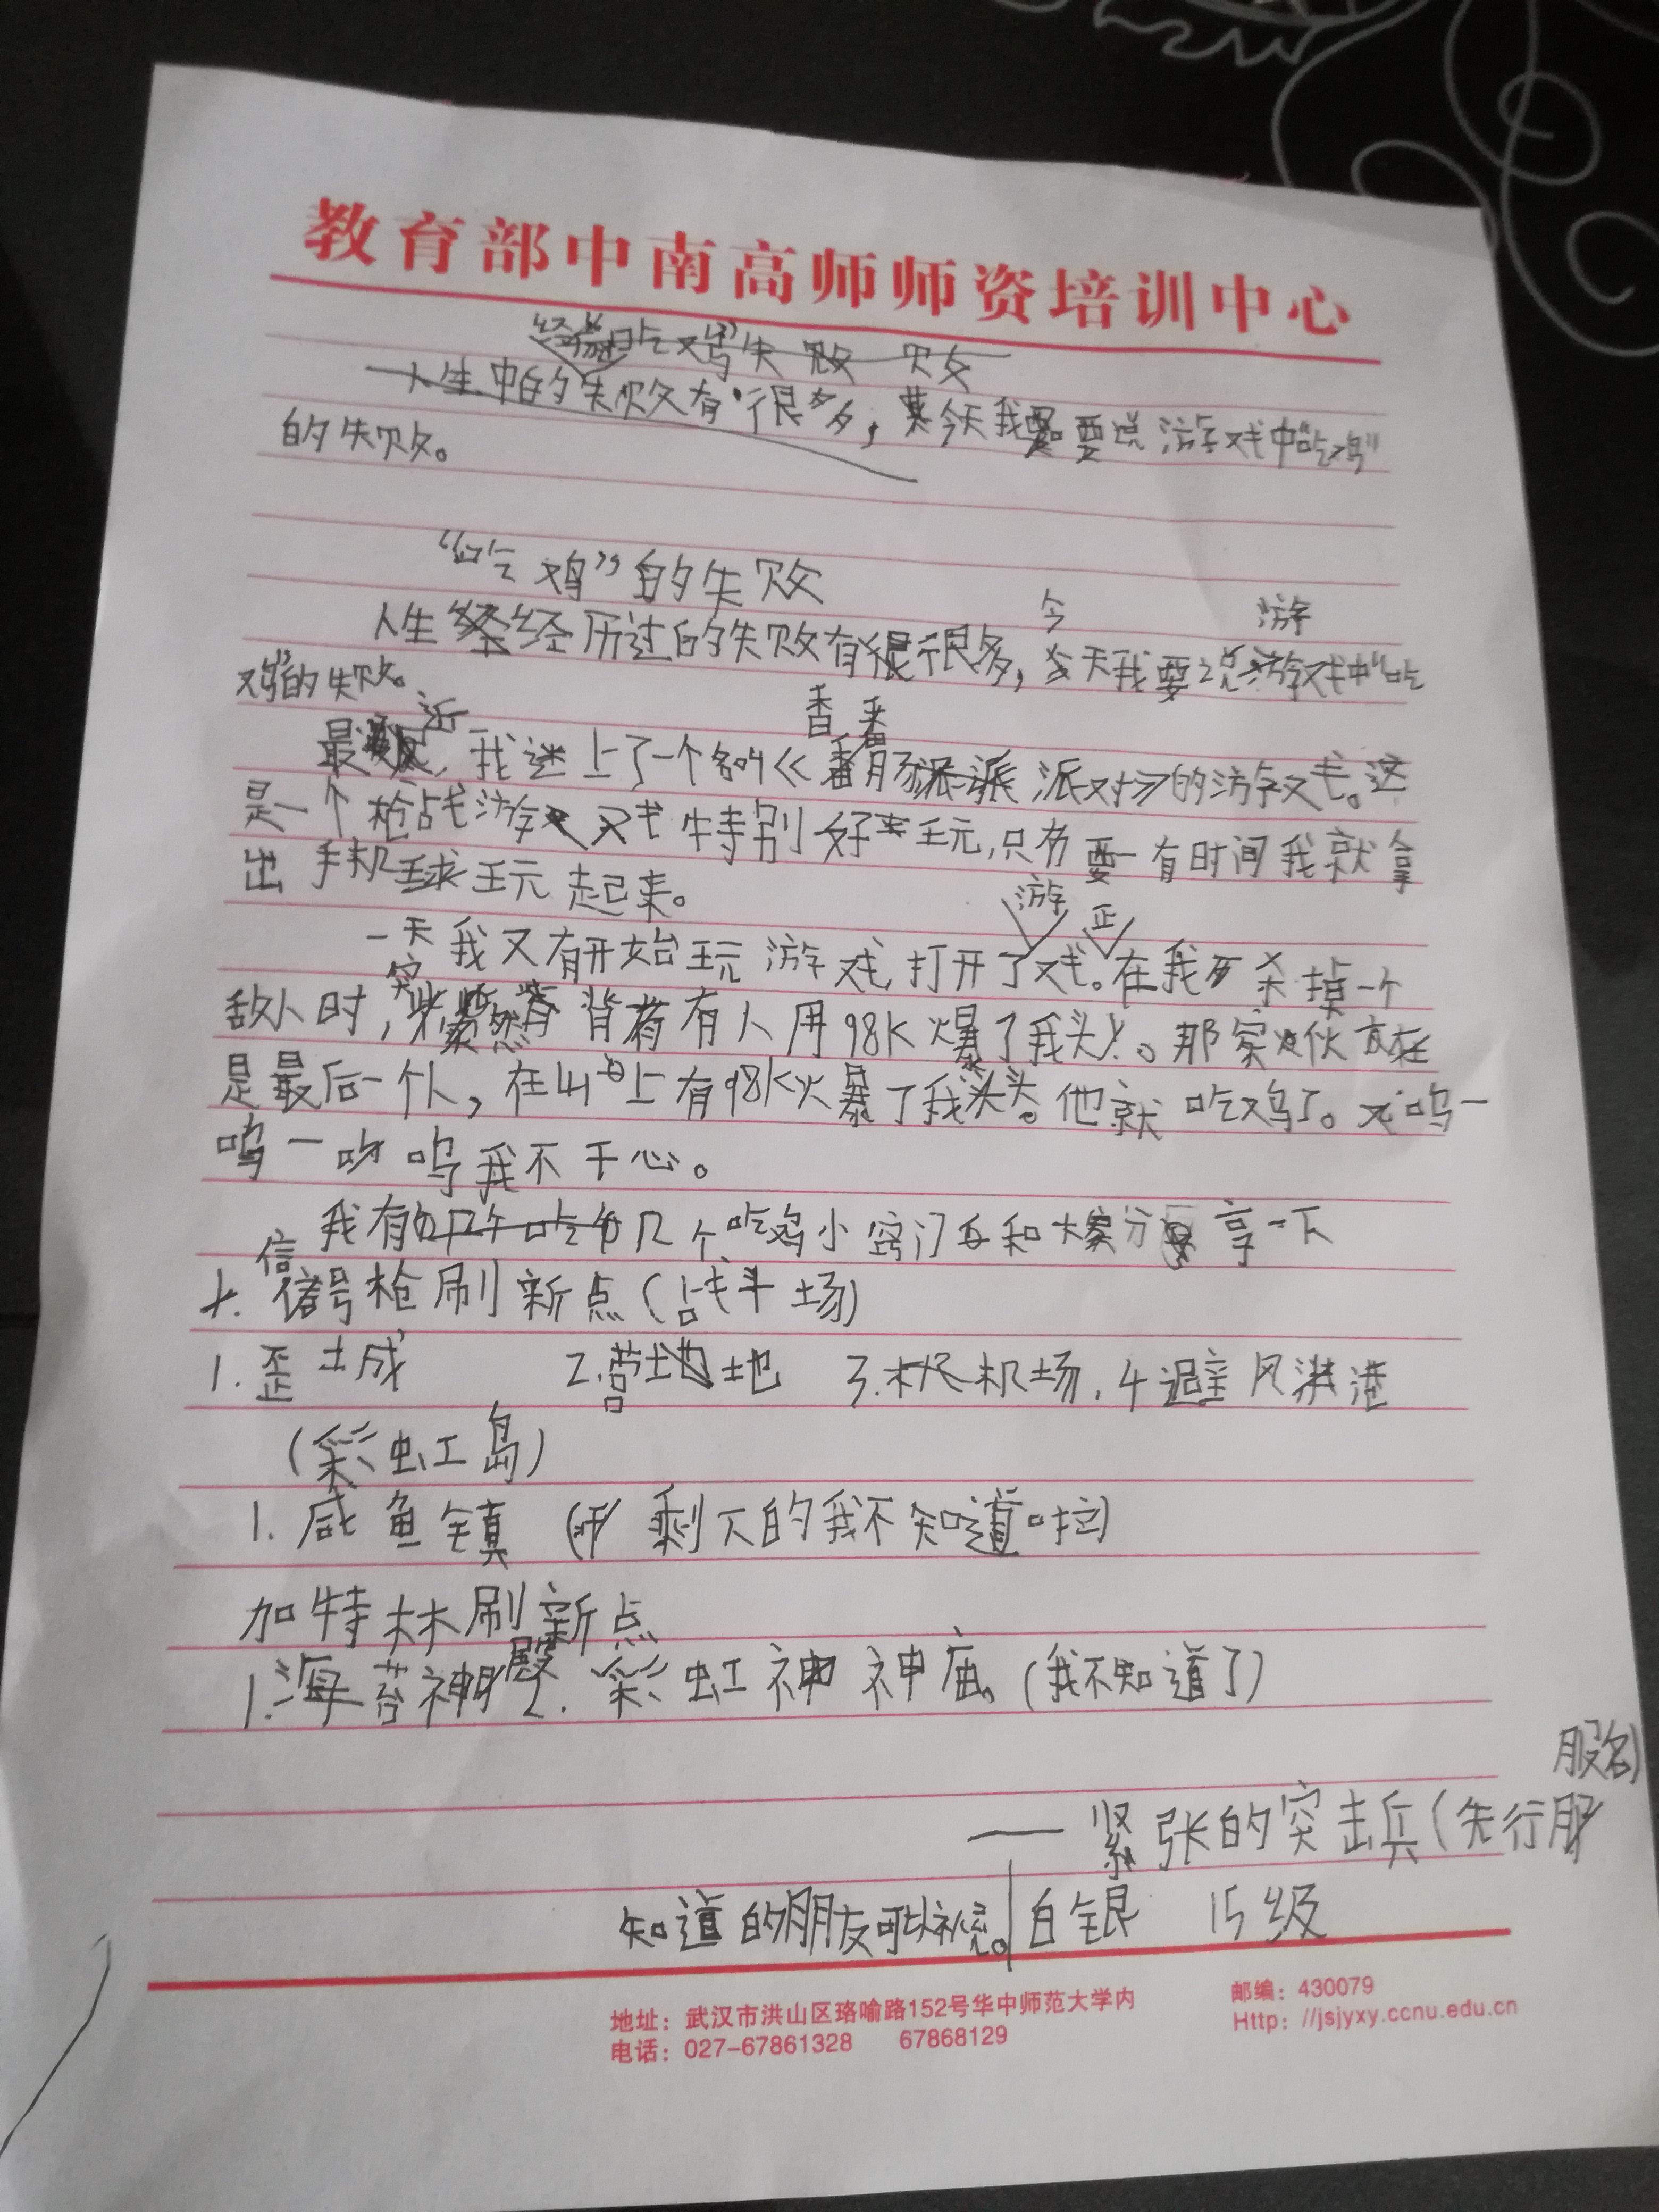 教育部中南高师师资培训中心
"吃鸡"失败
人生中的失败有很多，今天我要说游戏中"吃鸡"
的失败。
"吃鸡"的失败
今 游
人生经历过的失败有很多，天我要说游戏中"吃
鸡"的失败。
近 香
最，我迷上了一个名叫《肠派对》的游戏。这
是一个枪战游戏特别好玩，只要一有时间我就拿
出手机玩起来。
游 正
一天我又开始玩游戏，打开了戏。在我杀掉一个
突
敌人时，然背着有人用98K爆了我头。那家伙
是最后一个人，在山上有98K爆了我头。他就吃鸡了。呜一
呜一呜我不干心。
我有几个吃鸡小窍门和大家分享一下
信
号枪刷新点（战斗场）
1.歪城 2.营地 3.机场. 4避风港
（彩虹岛）
1.咸鱼镇（剩下的我不知道啦）
加特林刷新点
殿
1.海苔神 2.彩虹神庙。（我不知道了）
服名）
——紧张的突击兵（先行
知道的朋友可以补充。白银 15级
地址：武汉市洪山区珞喻路152号华中师范大学内 邮编：430079
电话：027-67861328 67868129 Http：//jsjyxy.ccnu.edu.cn